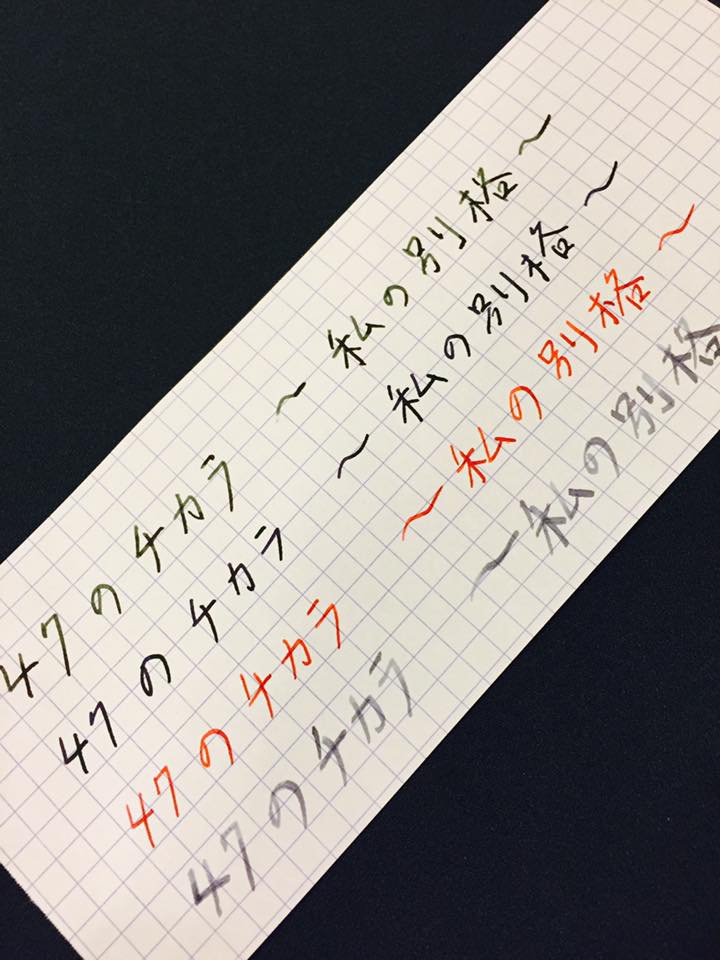 47のチカラ 〜私の別格〜
47のチカラ 〜私の別格〜
47のチカラ 〜私の別格〜
47のチカラ 〜私の別格